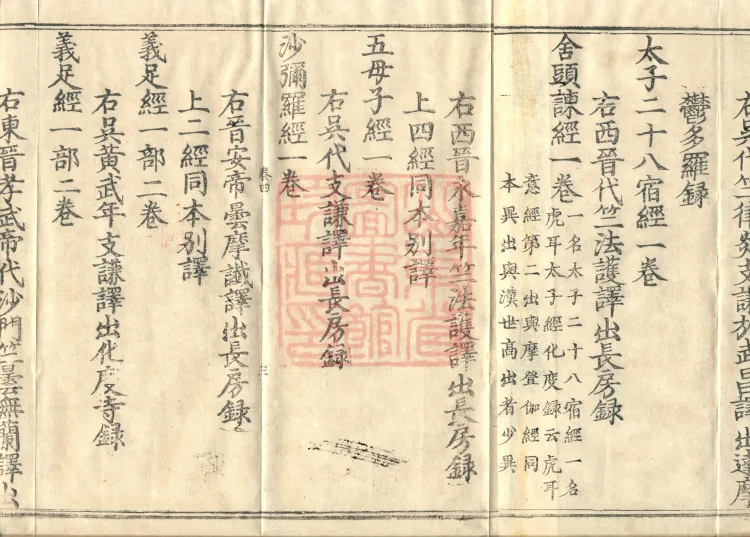 右吳代竺律炎支謙於武昌譯出達摩
鬱多羅録
太子二十八宿經一卷
右西晉代竺法護譯出長房録
舍頭諫經一卷
一名太子二十八宿經一名
虎耳太子經化度録云虎耳
意經第二出與摩登伽經同
本異出與漢世高出者少異
右西晉永嘉年竺法護譯出長房録
上四經同本別譯
五母子經一卷
右吳代支謙譯出長房録
沙彌羅經一卷
卷四
三
右晉安帝曇摩讖譯出長房録
上二經同本別譯
義足經一部二卷
右吳黃武年支謙譯出化度寺録
義足經一部二卷
右東晉孝武帝代沙門竺曇無蘭譯出